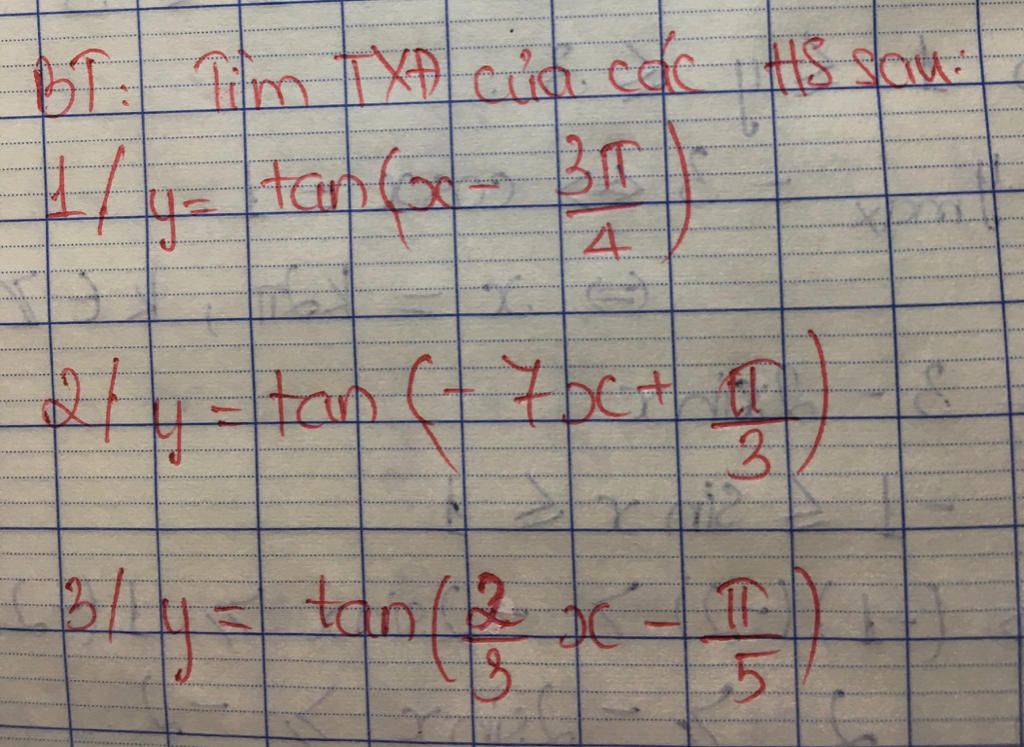 BT: Tìm TXĐ của các HS sau:
1/ y = tan(x - 3π/4)
2/ y = tan(-7x + π/3)
3/ y = tan(2/3 x - π/5)